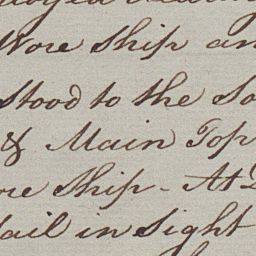 Wore Ship an
Stood to the So
& Main Top
ore Ship - At D
Sail in Sight